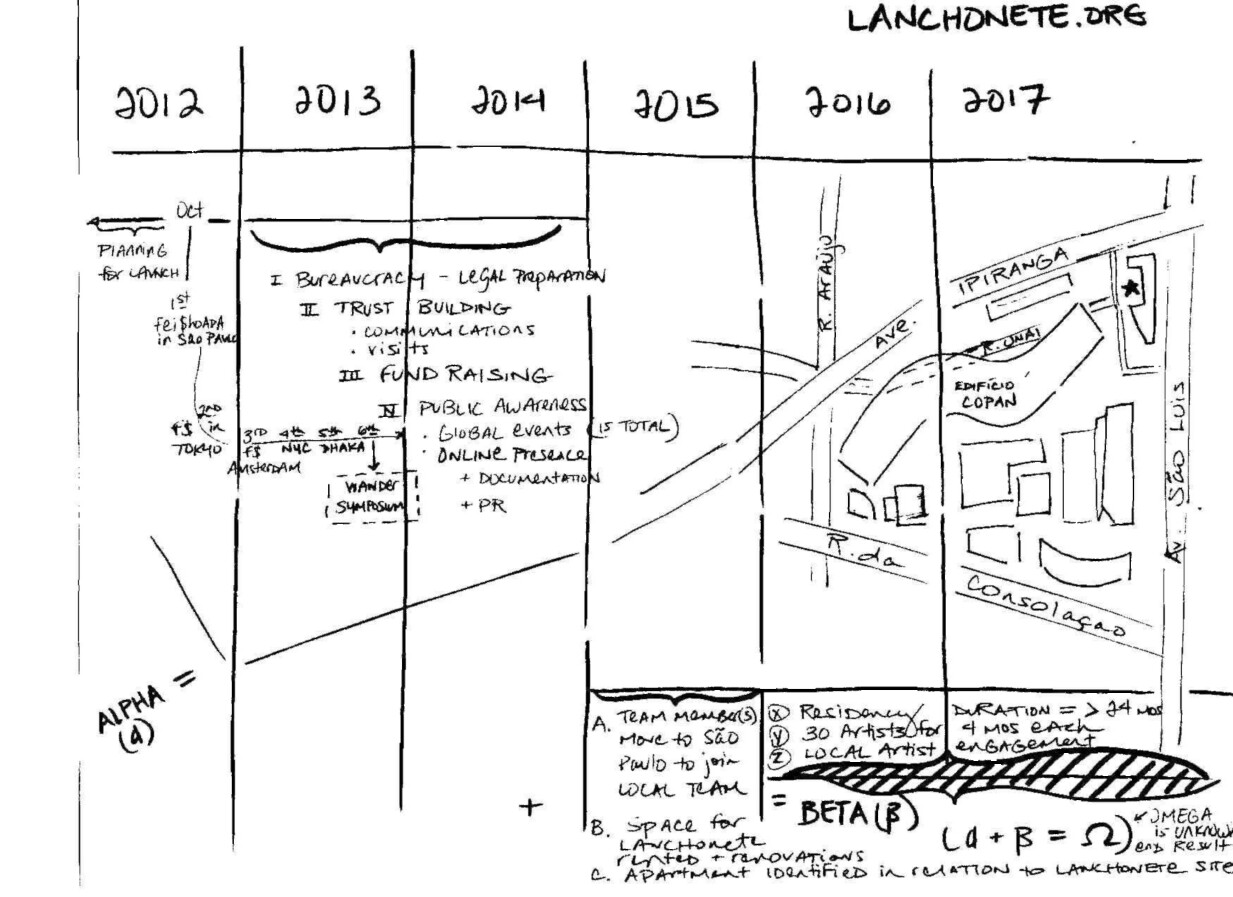 LANCHONETE.ORG
2012 2013 2014 2015 2016 2017
Oct
PLANNING
for LAUNCH
1st
fei$hoADA
in São PAULO
2nd
f$ in
TOKYO
3RD 4th 5th 6th
f$ NYC DHAKA
Amsterdam
WANDER
SYMPOSIUM
I Bureaucracy - LEGAL PREPARATION
II TRUST BUILDING
· COMMUNICATIONS
· visits
III FUND RAISING
IV PUBLIC AWAReness
· GLOBAL events (15 TOTAL)
· ONLINE Presence
+ DOCUMENTATION
+ PR
R. ARAUJO
AVE. IPIRANGA
R. UNAI
EDIFÍCIO
COPAN
Av. São Luis
R. da Consolaçao
ALPHA =
(α)
+
A. TEAM MEMBER(S)
MOVE to SÃO
PAULO to join
LOCAL TEAM
B. SPACE for
LANCHONETE
rented + renovations
C. APARTMENT IDENTIFIED in relation to LANCHONETE SITE
Ⓧ Residency DURATION = > 24 MOS
Ⓨ 30 Artists for 4 MOS each
Ⓩ LOCAL Artist engagement
= BETA (β)
(α + β = Ω)
OMEGA
is UNKNOWN
end Result